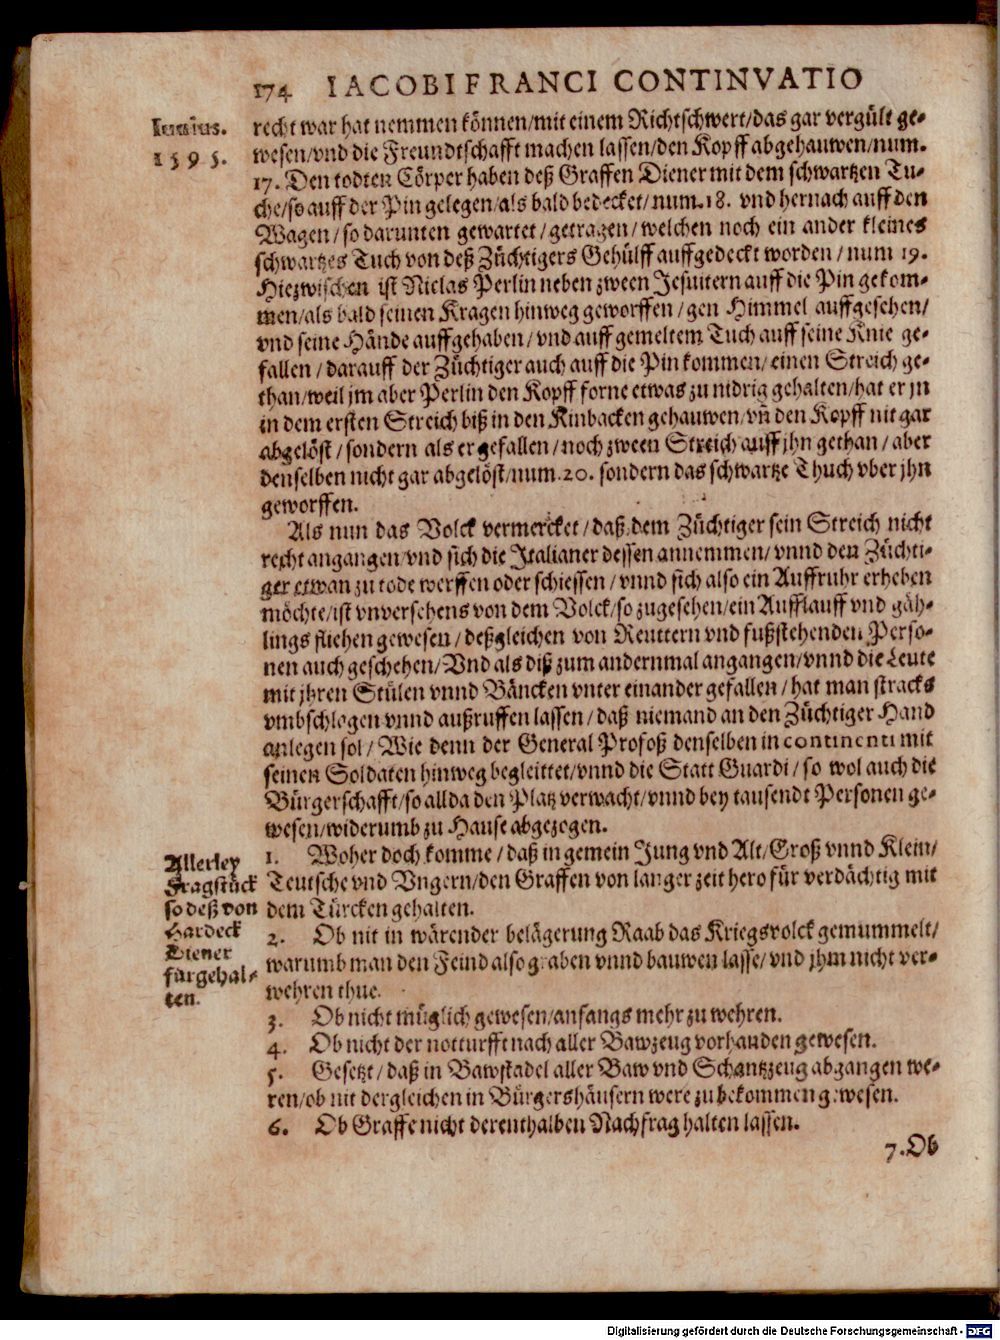 174 IACOBI FRANCI CONTINVATIO
Iunius.
1595.
recht war hat nemmen können/mit einem Richtschwert/das gar vergült ge-
wesen/vnd die Freundtschafft machen lassen/den Kopff abgehauwen/num.
17. Den todten Cörper haben deß Graffen Diener mit dem schwartzen Tu-
che/so auff der Pin gelegen/als bald bedecket/num.18. vnd hernach auff den
Wagen/so darunten gewartet/getragen/welchen noch ein ander kleines
schwartzes Tuch von deß Züchtigers Gehülff auffgedeckt worden/num 19.
Hiezwischen ist Niclas Perlin neben zween Jesuitern auff die Pin gekom-
men/als bald seinen Kragen hinweg geworffen/gen Himmel auffgesehen/
vnd seine Hände auffgehaben/vnd auff gemeltem Tuch auff seine Knie ge-
fallen/darauff der Züchtiger auch auff die Pin kommen/einen Streich ge-
than/weil jm aber Perlin den Kopff forne etwas zu nidrig gehalten/hat er jn
in dem ersten Streich biß in den Kinbacken gehauwen/vn̄ den Kopff nit gar
abgelöst/sondern als er gefallen/noch zween Streich auff jhn gethan/aber
denselben nicht gar abgelöst/num.20. sondern das schwartze Thuch vber jhn
geworffen.
Als nun das Volck vermercket/daß dem Züchtiger sein Streich nicht
recht angangen/vnd sich die Italianer dessen annemmen/vnnd den Züchti-
ger etwan zu tode werffen oder schiessen/vnnd sich also ein Auffruhr erheben
möchte/ist vnversehens von dem Volck/so zugesehen/ein Aufflauff vnd gäh-
lings fliehen gewesen/deßgleichen von Reuttern vnd fußstehenden Perso-
nen auch geschehen/Vnd als diß zum andernmal angangen/vnnd die Leute
mit jhren Stülen vnnd Bäncken vnter einander gefallen/hat man stracks
vmbschlagen vnnd außruffen lassen/daß niemand an den Züchtiger Hand
anlegen sol/Wie denn der General Profoß denselben in continenti mit
seinen Soldaten hinweg begleittet/vnnd die Statt Guardi/so wol auch die
Bürgerschafft/so allda den Platz verwacht/vnnd bey tausendt Personen ge-
wesen/widerumb zu Hause abgezogen.
Allerley
Fragstück
so deß von
Hardeck
Diener
fürgehal-
ten.
1. Woher doch komme/daß in gemein Jung vnd Alt/Groß vnnd Klein/
Teutsche vnd Vngern/den Graffen von langer zeit hero für verdächtig mit
dem Türcken gehalten.
2. Ob nit in wärender belägerung Raab das Kriegsvolck gemummelt/
warumb man den Feind also graben vnnd bauwen lasse/vnd jhm nicht ver-
wehren thue.
3. Ob nicht müglich gewesen/anfangs mehr zu wehren.
4. Ob nicht der notturfft nach aller Bawzeug vorhanden gewesen.
5. Gesetzt/daß in Bawstadel aller Baw vnd Schantzzeug abgangen we-
ren/ob nit dergleichen in Bürgershäusern were zu bekommen gewesen.
6. Ob Graffe nicht derenthalben Nachfrag halten lassen.
7. Ob
Digitalisierung gefördert durch die Deutsche Forschungsgemeinschaft - DFG